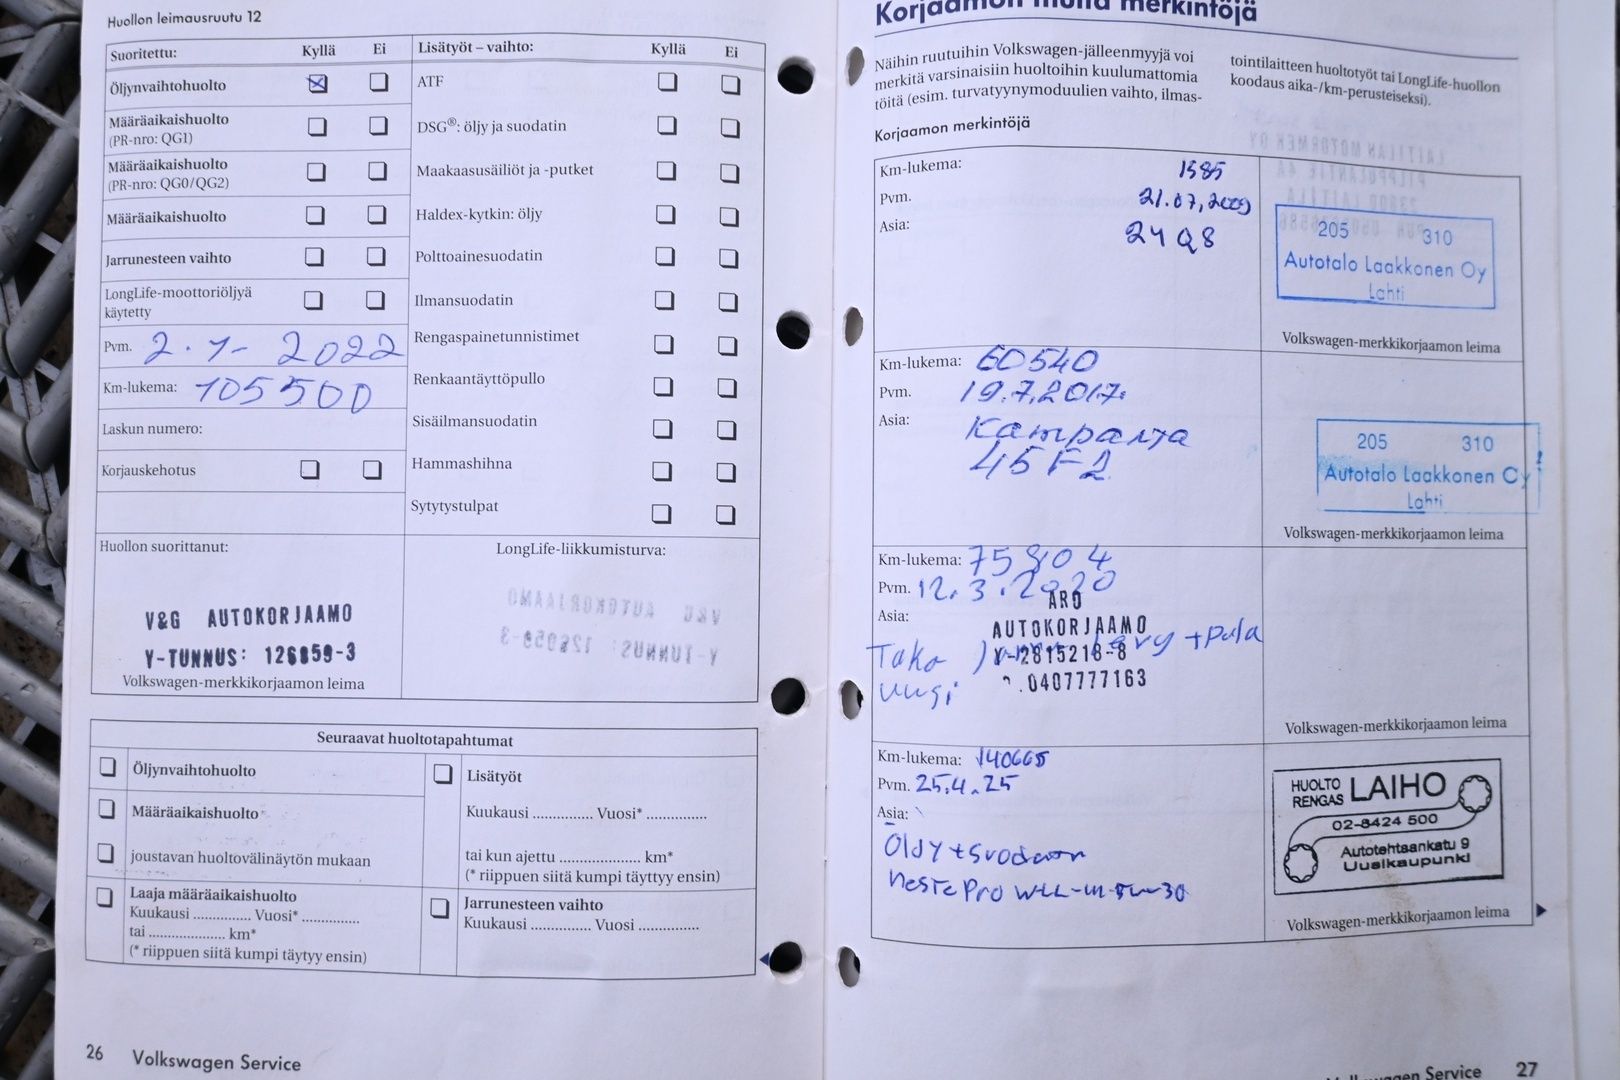 Huollon leimausruutu 12
Suoritettu: Kyllä Ei
Öljynvaihtohuolto
Määräaikaishuolto
(PR-nro: QG1)
Määräaikaishuolto
(PR-nro: QG0/QG2)
Määräaikaishuolto
Jarrunesteen vaihto
LongLife-moottoriöljyä
käytetty
Pvm. 2.1-2022
Km-lukema: 105500
Laskun numero:
Korjauskehotus
Lisätyöt – vaihto: Kyllä Ei
ATF
DSG®: öljy ja suodatin
Maakaasusäiliöt ja -putket
Haldex-kytkin: öljy
Polttoainesuodatin
Ilmansuodatin
Rengaspainetunnistimet
Renkaantäyttöpullo
Sisäilmansuodatin
Hammashihna
Sytytystulpat
Huollon suorittanut:
V&G AUTOKORJAAMO
Y-TUNNUS: 126859-3
Volkswagen-merkkikorjaamon leima
LongLife-liikkumisturva:
Seuraavat huoltotapahtumat
Öljynvaihtohuolto
Määräaikaishuolto
joustavan huoltovälinäytön mukaan
Laaja määräaikaishuolto
Kuukausi ............... Vuosi* ...............
tai .................... km*
(* riippuen siitä kumpi täytyy ensin)
Lisätyöt
Kuukausi ............... Vuosi* ...............
tai kun ajettu .................... km*
(* riippuen siitä kumpi täyttyy ensin)
Jarrunesteen vaihto
Kuukausi ............... Vuosi ...............
26 Volkswagen Service
Korjaamon muita merkintöjä
Näihin ruutuihin Volkswagen-jälleenmyyjä voi
merkitä varsinaisiin huoltoihin kuulumattomia
töitä (esim. turvatyynymoduulien vaihto, ilmas-
tointilaitteen huoltotyöt tai LongLife-huollon
koodaus aika-/km-perusteiseksi).
Korjaamon merkintöjä
Km-lukema: 1585
Pvm. 21.07,2009
Asia: 24Q8
205 310
Autotalo Laakkonen Oy
Lahti
Volkswagen-merkkikorjaamon leima
Km-lukema: 60540
Pvm. 19.7.2017
Asia: Kampanja
45F2
205 310
Autotalo Laakkonen Oy
Lahti
Volkswagen-merkkikorjaamon leima
Km-lukema: 75804
Pvm. 12.3.2020
Asia:
ARO
AUTOKORJAAMO
Y-2815218-8
0407777163
Taka levy + pala
uusi
Volkswagen-merkkikorjaamon leima
Km-lukema: 140665
Pvm. 25.4.25
Asia:
Öljy + suodatin
Neste Pro
HUOLTO
RENGAS LAIHO
02-8424 500
Autotehtaankatu 9
Uusikaupunki
Volkswagen-merkkikorjaamon leima
Volkswagen Service 27